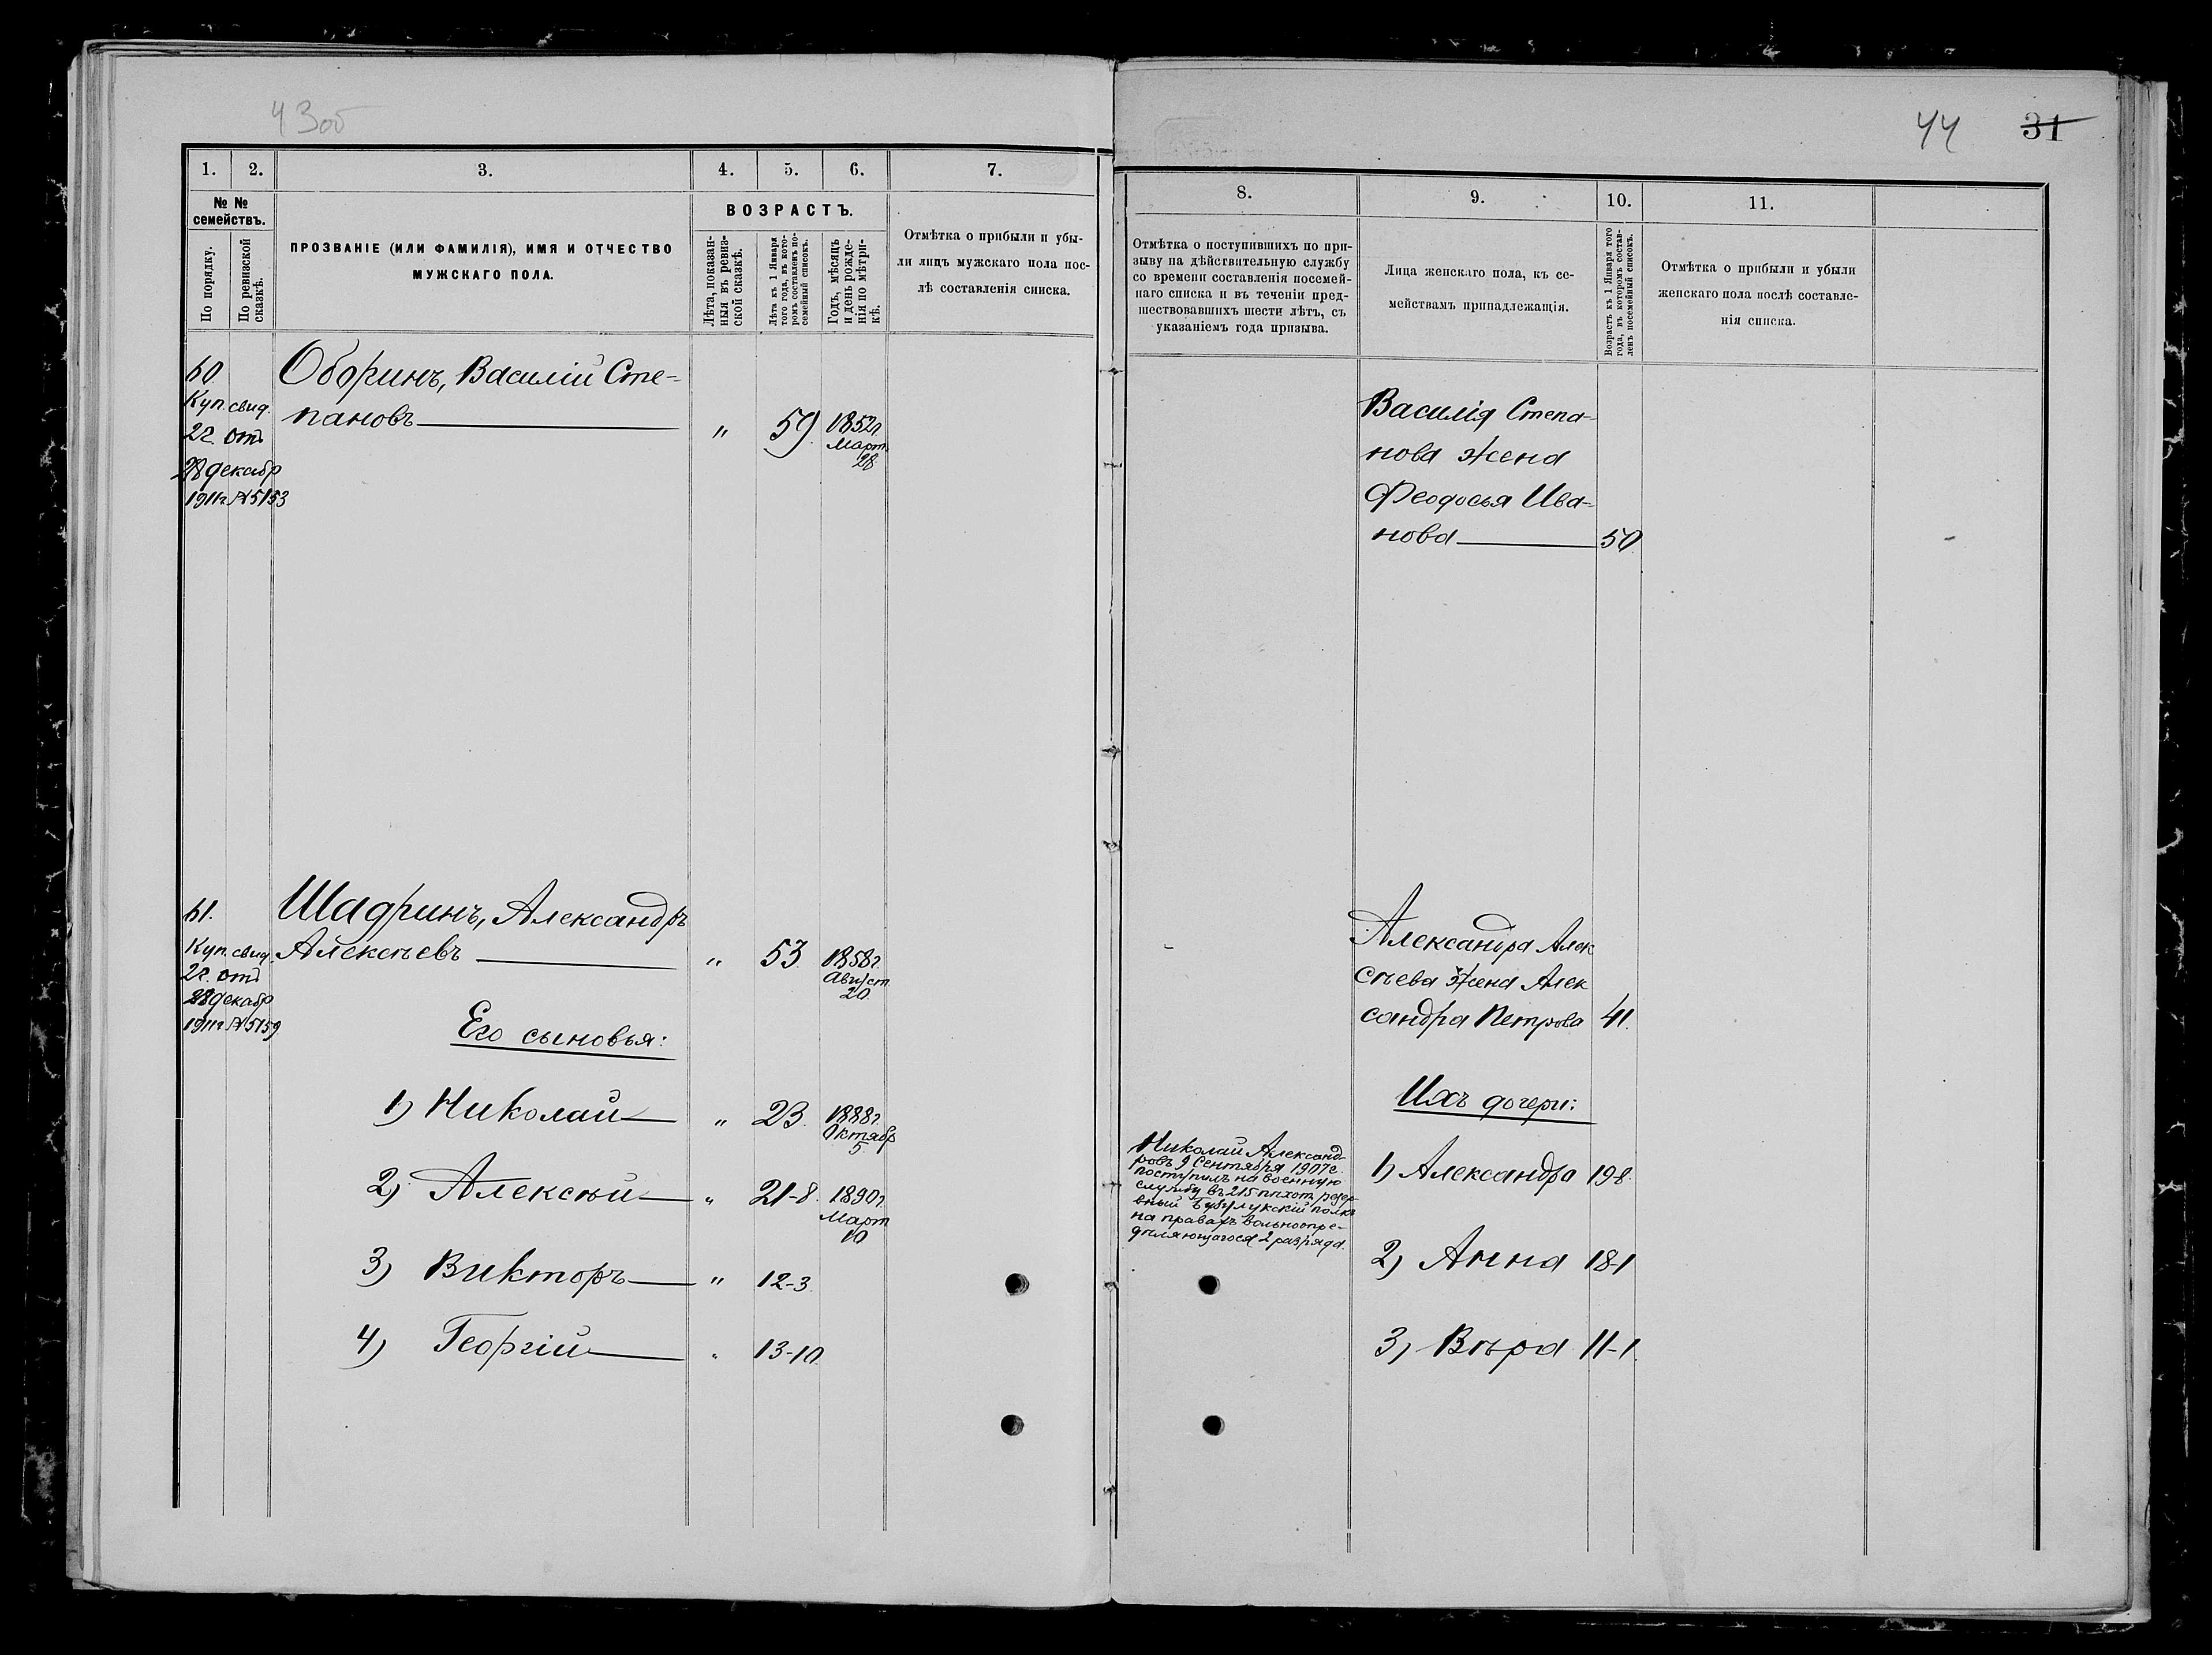 43об
1.
2.
3.
4.
5.
6.
7.
№ №
семействъ.
По порядку.
По ревизской
сказкѣ.
ПРОЗВАНІЕ (ИЛИ ФАМИЛІЯ), ИМЯ И ОТЧЕСТВО
МУЖСКАГО ПОЛА.
ВОЗРАСТЪ.
Лѣта, показан-
ныя въ ревиз-
ской сказкѣ.
Лѣта къ 1 Января
того года, въ кото-
ромъ составленъ по-
семейный списокъ.
Годъ, мѣсяцъ
и день рожде-
нія по мѣтри-
кѣ.
Отмѣтка о прибыли и убы-
ли лицъ мужскаго пола пос-
лѣ составленія списка.
60
Куп. свид.
2г. отъ
28 декабр
1911г №5153
Оборинъ, Василій Сте-
пановъ
„
59.
1852г.
Март.
28.
61.
Куп. свид.
2г. отъ
28 декабр
1911г №5159
Шадринъ, Александръ
Алексѣевъ
„
53
1858г.
Август.
20.
Его сыновья:
1) Николай
„
23.
1888г.
Октябр
5.
2) Алексѣй
„
21-8.
1890г.
Март
10
3) Викторъ
„
12-3.
4) Георгій
„
13-10
44
31
8.
9.
10.
11.
Отмѣтка о поступившихъ по при-
зыву на дѣйствительную службу
со времени составленія посемей-
наго списка и въ теченіи пред-
шествовавшихъ шести лѣтъ, съ
указаніемъ года призыва.
Лица женскаго пола, къ се-
мействамъ принадлежащія.
Возрастъ къ 1 Января того
года, въ которомъ состав-
ленъ посемейный списокъ.
Отмѣтка о прибыли и убыли
женскаго пола послѣ составле-
нія списка.
Василія Степа-
нова жена
Феодосья Ива-
нова
50
Александра Алек
сѣева жена Алек
сандра Петрова
41.
Ихъ дочери:
Николай Александ-
ровъ 9 Сентября 1907г.
поступилъ на военную
службу въ 215 пѣхот. резер-
вный Бузулукскій полкъ
на правахъ вольноопре-
дѣляющагося 2 разряда.
1) Александра
19-8.
2) Анна
18-1
3) Вѣра
11-1.